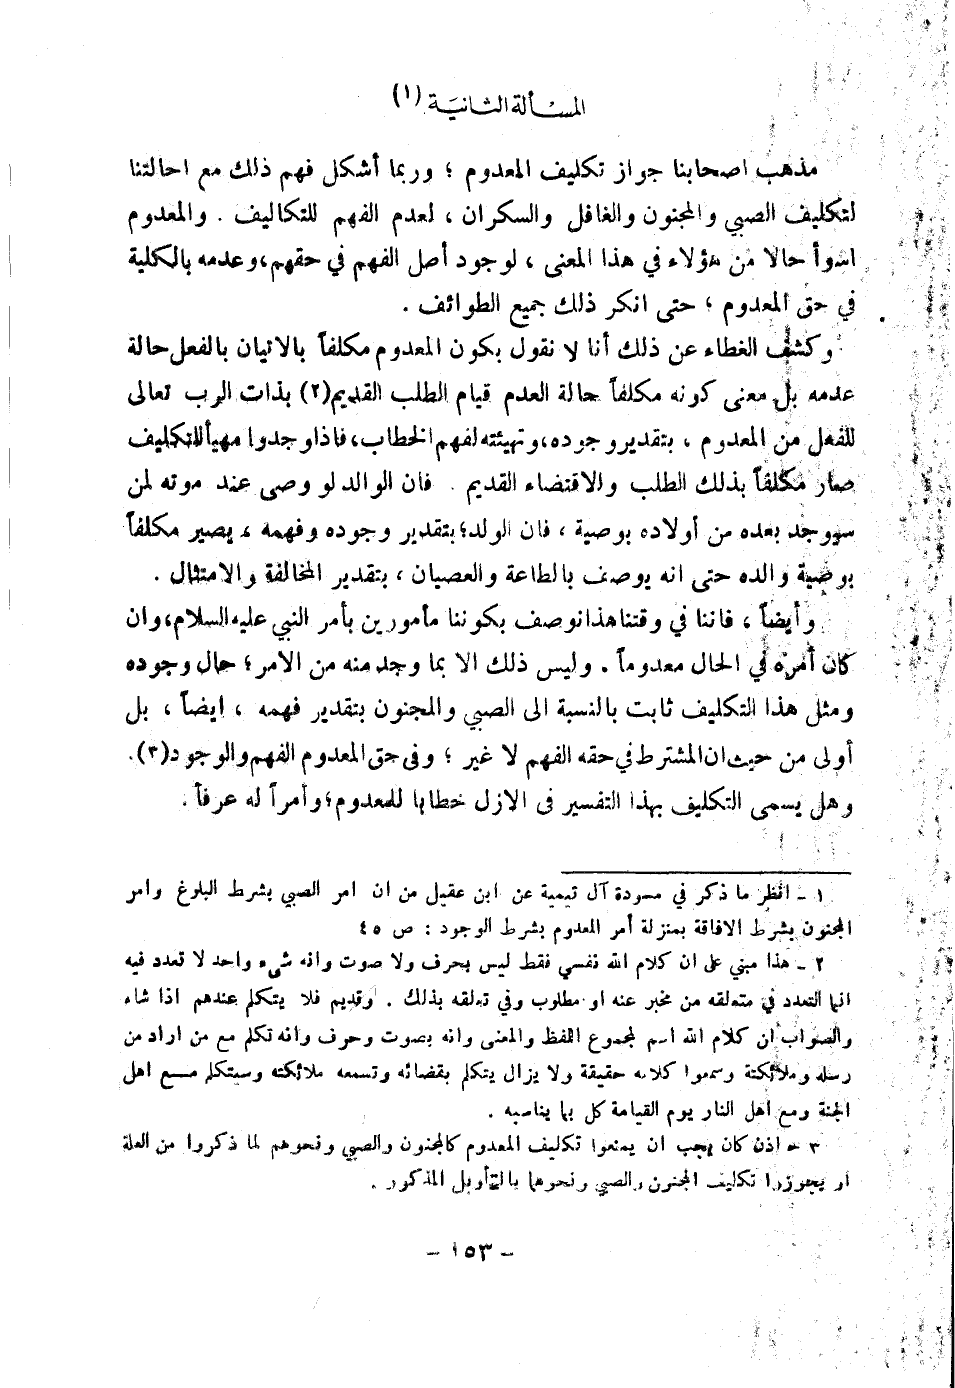 المسألة الثانية (١)
مذهب اصحابنا جواز تكليف المعدوم ؛ وربما أشكل فهم ذلك مع احالتنا
لتكليف الصبي والمجنون والغافل والسكران ، لعدم الفهم للتكاليف . والمعدوم
اسوأ حالا من هؤلاء في هذا المعنى ، لوجود أصل الفهم في حقهم ، وعدمه بالكلية
في حق المعدوم ؛ حتى انكر ذلك جميع الطوائف .
وكشف الغطاء عن ذلك أنا لا نقول بكون المعدوم مكلفاً بالاتيان بالفعل حالة
عدمه بل معنى كونه مكلفاً حالة العدم قيام الطلب القديم(٢) بذات الرب تعالى
للفعل من المعدوم ، بتقدير وجوده ، وتهيئته لفهم الخطاب ، فاذا وجدوا مهيأ للتكليف
صار مكلفاً بذلك الطلب والاقتضاء القديم . فان الوالد لو وصى عند موته لمن
سيوجد بعده من أولاده بوصية ، فان الولد ؛ بتقدير وجوده وفهمه ، يصير مكلفاً
بوصية والده حتى انه يوصف بالطاعة والعصيان ، بتقدير المخالفة والامتثال .
وأيضاً ، فاننا في وقتنا هذا نوصف بكوننا مأمورين بأمر النبي عليه السلام ، وان
كان أمره في الحال معدوماً . وليس ذلك الا بما وجد منه من الامر ؛ حال وجوده
ومثل هذا التكليف ثابت بالنسبة الى الصبي والمجنون بتقدير فهمه ، ايضاً ، بل
أولى من حيث ان المشترط في حقه الفهم لا غير ؛ وفى حق المعدوم الفهم والوجود(٣).
وهل يسمى التكليف بهذا التفسير فى الازل خطابا للمعدوم ؛ وأمراً له عرفاً .
١ ـ انظر ما ذكر في مسودة آل تيمية عن ابن عقيل من ان امر الصبي بشرط البلوغ وامر
المجنون بشرط الافاقة بمنزلة أمر المعدوم بشرط الوجود : ص ٤٥
٢ ـ هذا مبني على ان كلام الله نفسي فقط ليس بحرف ولا صوت وانه شيء واحد لا تعدد فيه
انما التعدد في متعلقه من مخبر عنه او مطلوب وفي تعلقه بذلك . وقديم فلا يتكلم عندهم اذا شاء
والصواب ان كلام الله اسم لمجموع اللفظ والمعنى وانه بصوت وحرف وانه تكلم مع من اراد من
رسله وملائكته وسمعوا كلامه حقيقة ولا يزال يتكلم بقضائه وتسمعه ملائكته وسيتكلم مـع اهل
الجنة ومع اهل النار يوم القيامة كل بما يناسبه .
٣ ـ اذن كان يجب ان يمنعوا تكليف المعدوم كالمجنون والصبي ونحوهم لما ذكروا من العلة
او يجوزوا تكليف المجنون والصبي ونحوهما بالتأويل المذكور .
ـ ١٥٣ ـ